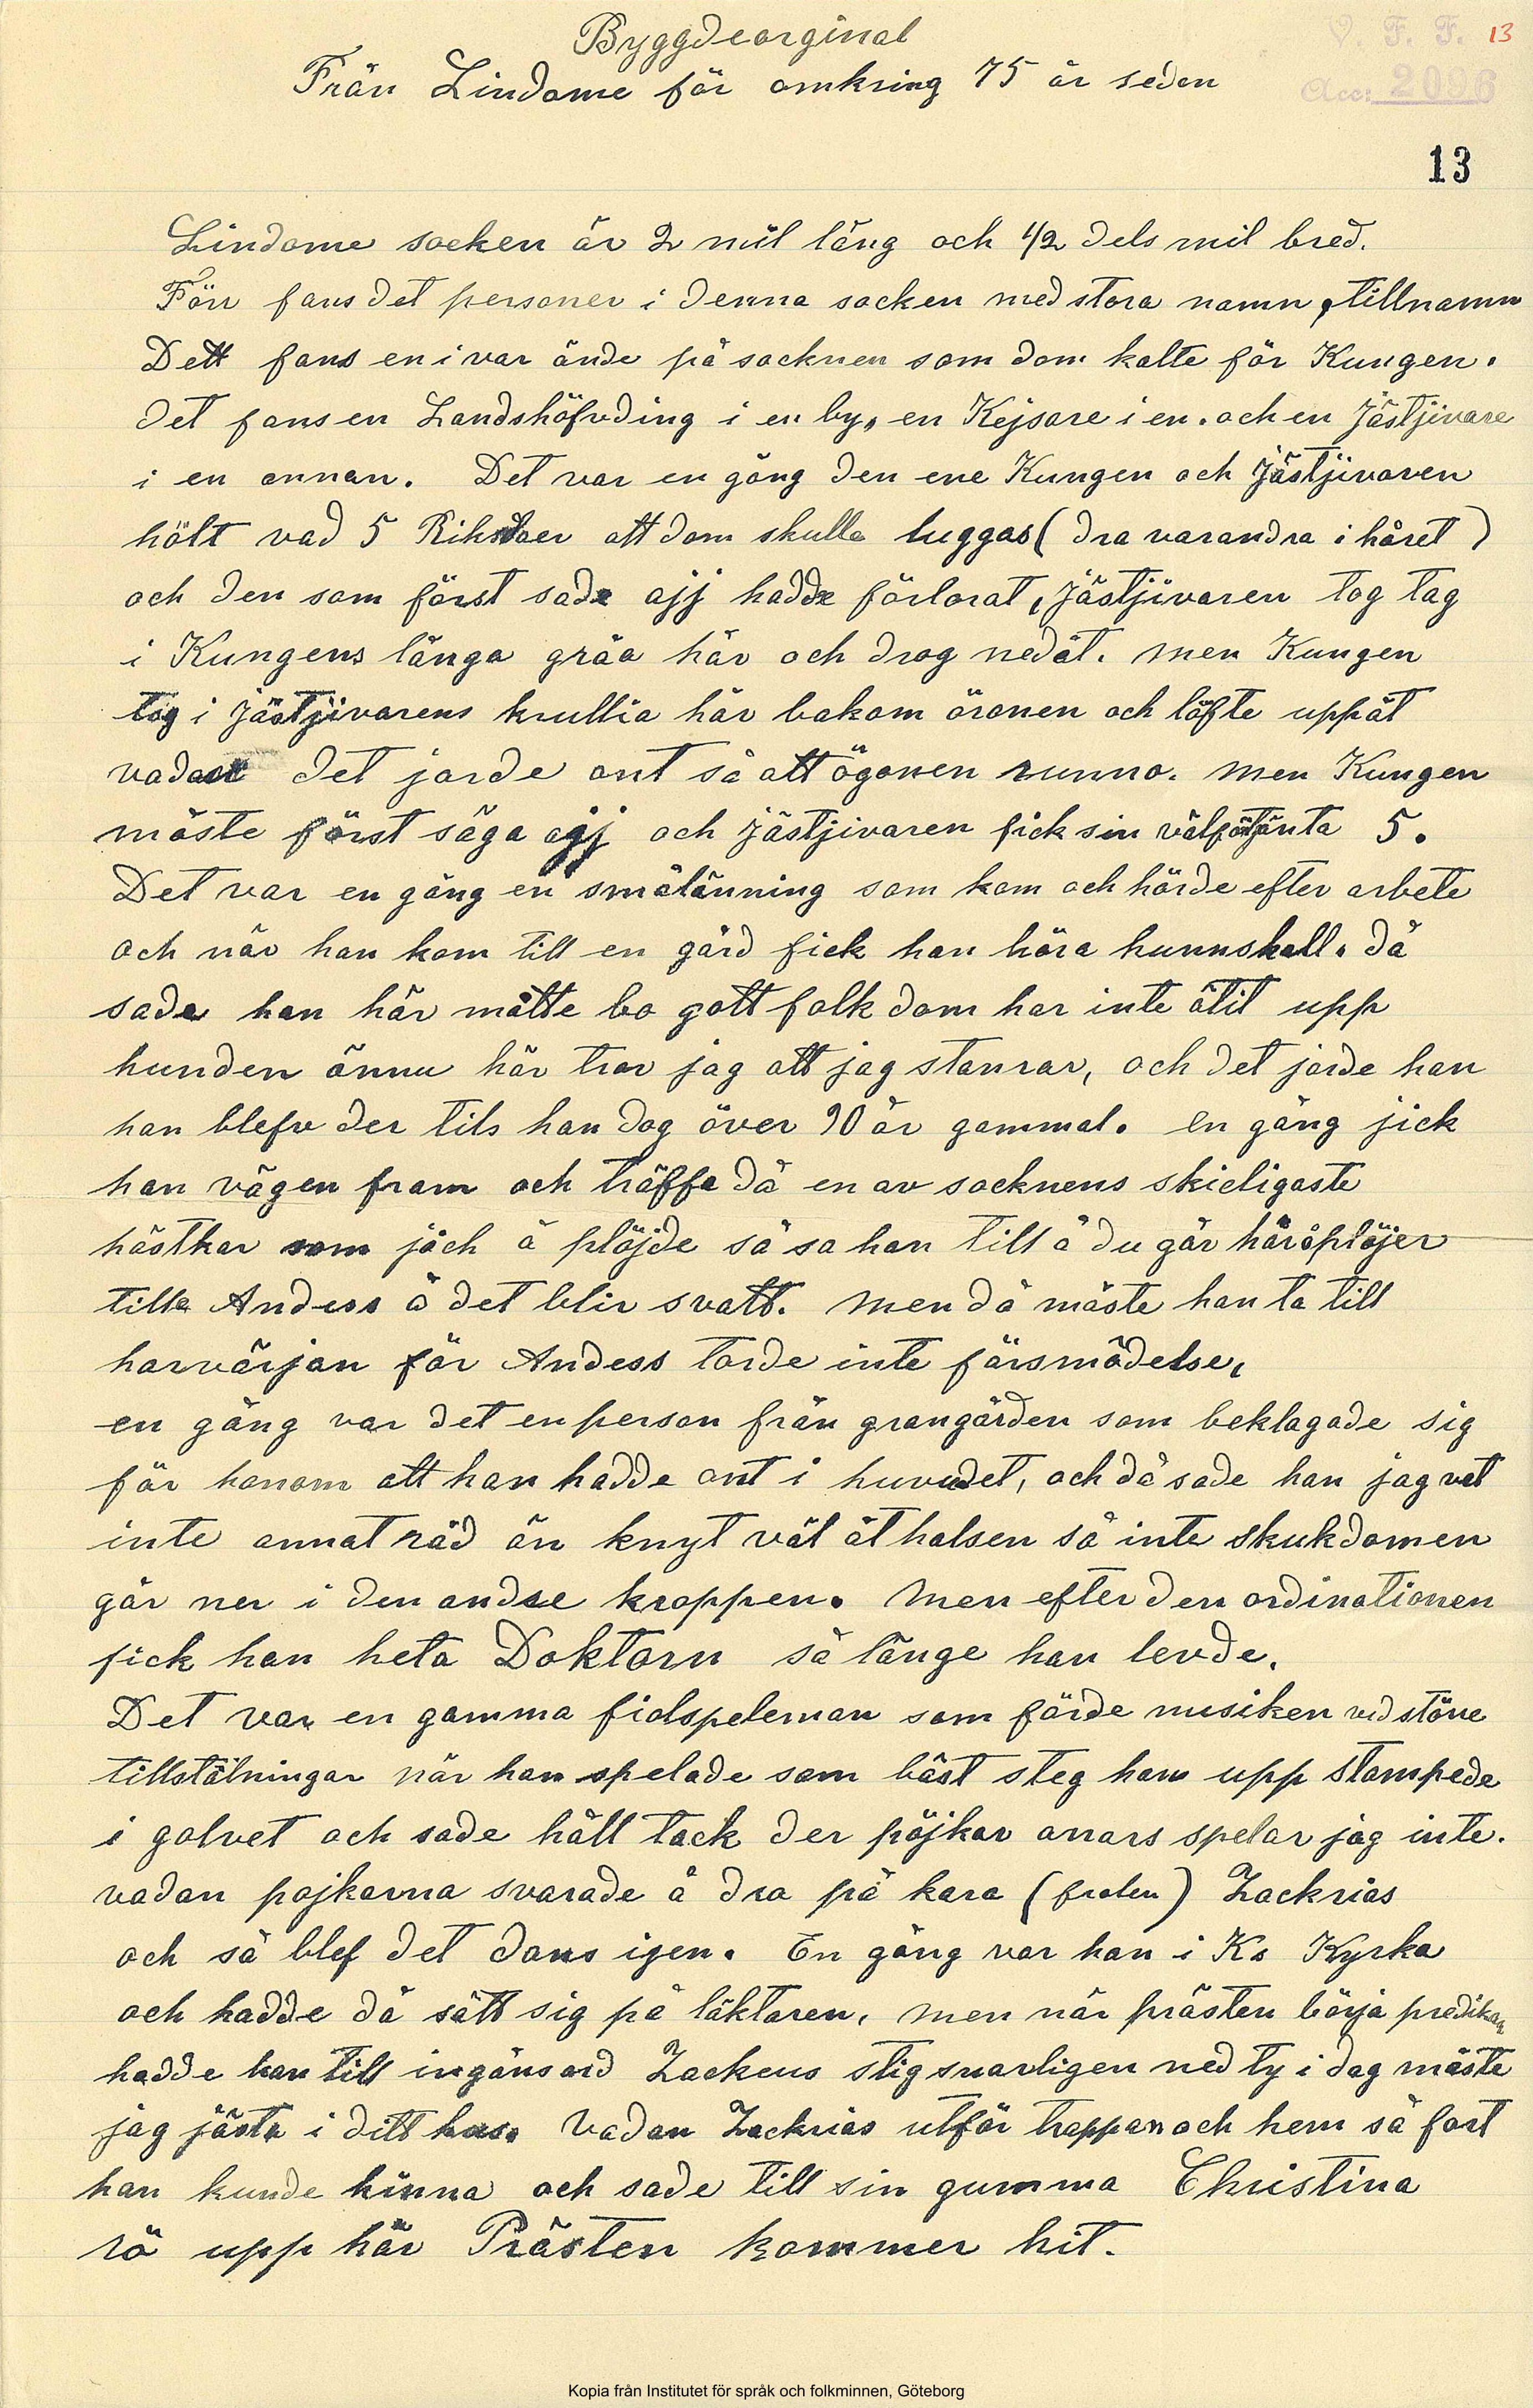 Byggdeorginal
V. F. F. 13
Från Lindome för omkring 75 år sedan
Acc: 2096
13
Lindome socken är 2 mil lång och 1/2 dels mil bred.
Förr fans det personer i denna socken med stora namn, tillnamn
Dett fans en i var ände på socknen som dom kalte för Kungen.
det fans en Landshöfvding i en by, en Kejsare i en. och en Jästjivare
i en annan. Det var en gång den ene Kungen och Jästjivaren
hölt vad 5 Riksdaer att dom skulle luggas (dra varandra i håret)
och den som först sade ajj hadde förlorat, Jästjivaren tog tag
i Kungens långa gråa hår och drog nedåt. men Kungen
tog i Jästjivarens krullia hår bakom öronen och löfte uppåt
vadan det jorde ont så att ögonen runno. men Kungen
måste först säga ajj och Jästjivaren fick sin välförtjänta 5.
Det var en gång en smålänning som kom och hörde efter arbete
och når han kom till en gård fick han höra hunnskall. då
sade han här måtte bo gott folk dom har inte ätit upp
hunden ännu här tror jag att jag stannar, och det jorde han
han blefv der tils han dog över 90 år gammal. en gång jick
han vägen fram och träffa då en av socknens skicligaste
hästkar som jäck å plöjde så sa han till å du går här å plöjer
tille Andess å det blir svatt. men då måste han ta till
harvärjan för Andess torde inte försmädelse,
en gång var det en person från grangården som beklagade sig
för honom att han hadde ont i huvudet, och då sade han jag vet
inte annat råd än knyt väl åt halsen så inte skukdomen
går ner i den andre kroppen. men efter den ordinationen
fick han heta Doktorn så länge han levde.
Det var en gamma fiolspeleman som förde musiken vid störe
tillstälningar når han spelade som bäst steg han upp stampede
i golvet och sade håll tack der pöjkar anars spelar jag inte.
vadan pojkarna svarade å dra på kara (fralen) Zackrias
och så blef det dans igen. En gång var han i Ks Kyrka
och hadde då sått sig på läktaren, men når prästen börja predikan
hadde han till ingånsord Zackeus stig snarligen ned ty i dag måste
jag jästa i ditt hus. Vadan Zackrias utför trappan och hem så fort
han kunde hinna och sade till sin gumma Christina
rö upp här Prästen kommer hit.
Kopia från Institutet för språk och folkminnen, Göteborg